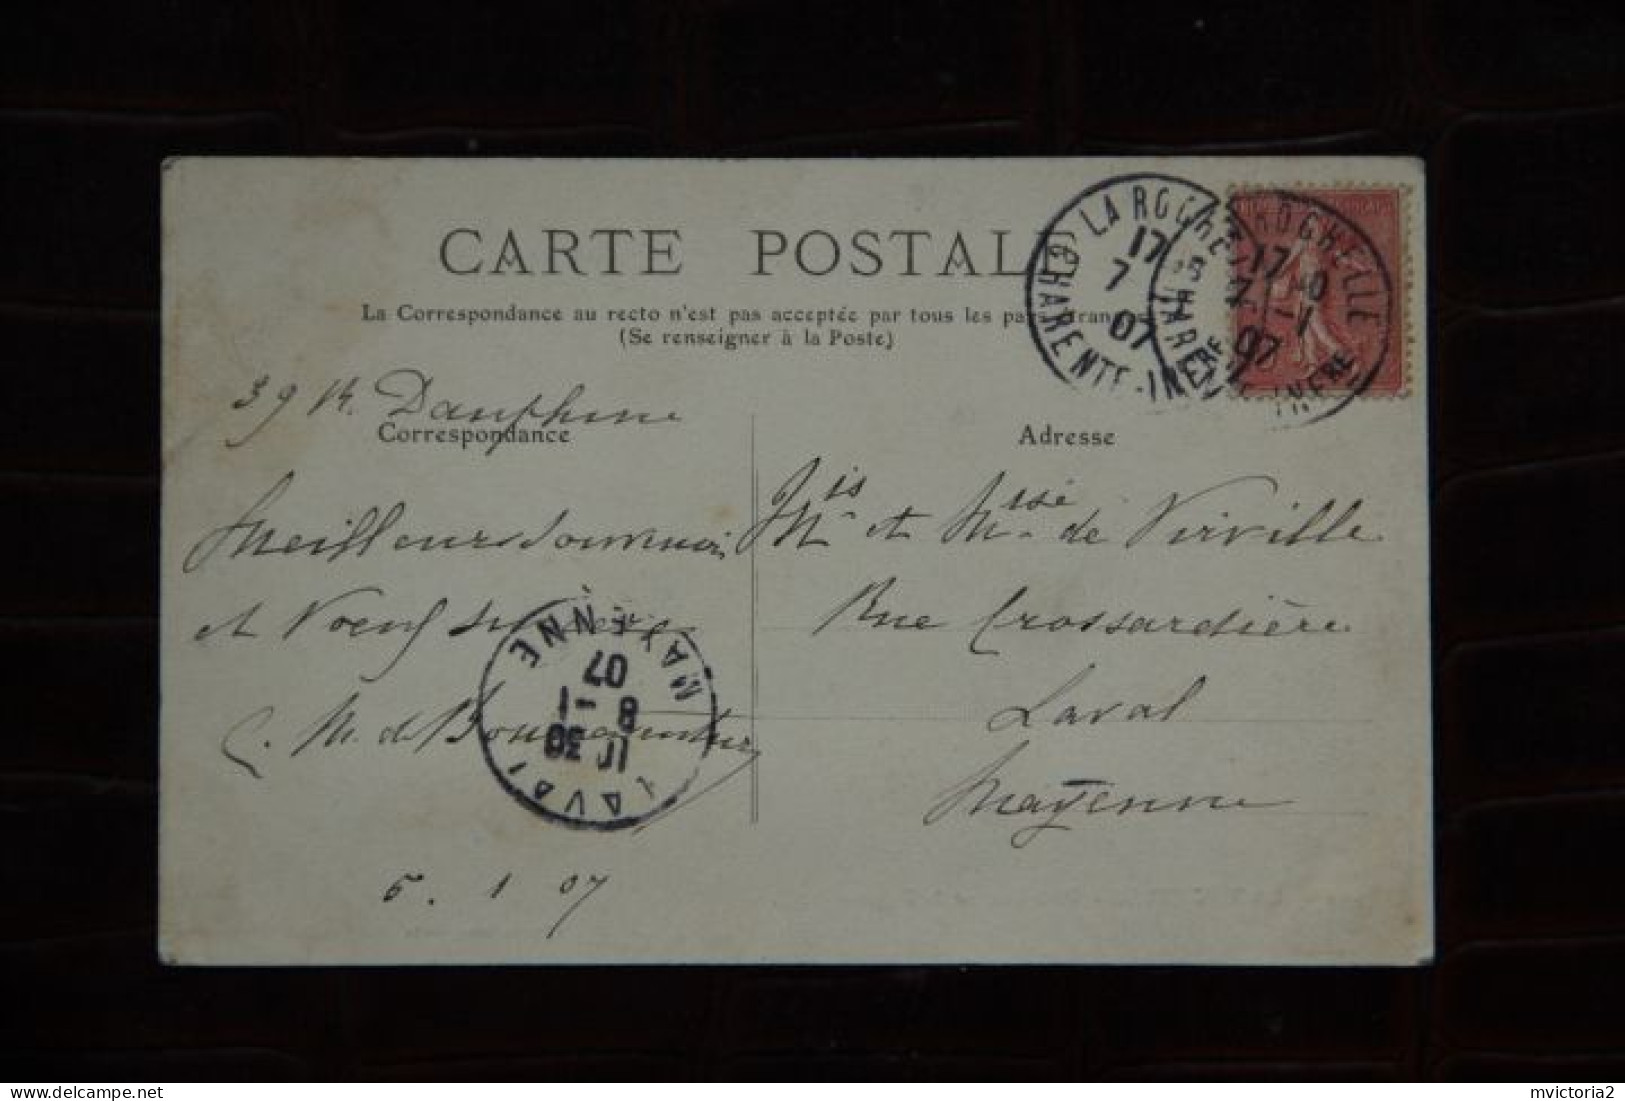 CARTE POSTALE
La Correspondance au recto n'est pas acceptée par tous les pays étrangers
(Se renseigner à la Poste)
39 R. Dauphine
Correspondance
Meilleurs souvenirs
et Voeux
C. M. de
6. 1 07
Adresse
Mis et Mise de Virville
Rue Crossardière
Laval
Mayenne
LA ROCHELLE
17
7
07
CHARENTE-INFRE
LA ROCHELLE
17 40
7 -1
07
CHARENTE-INFRE
LAVAL
11 30
8 -1
07
MAYENNE
mvictoria2